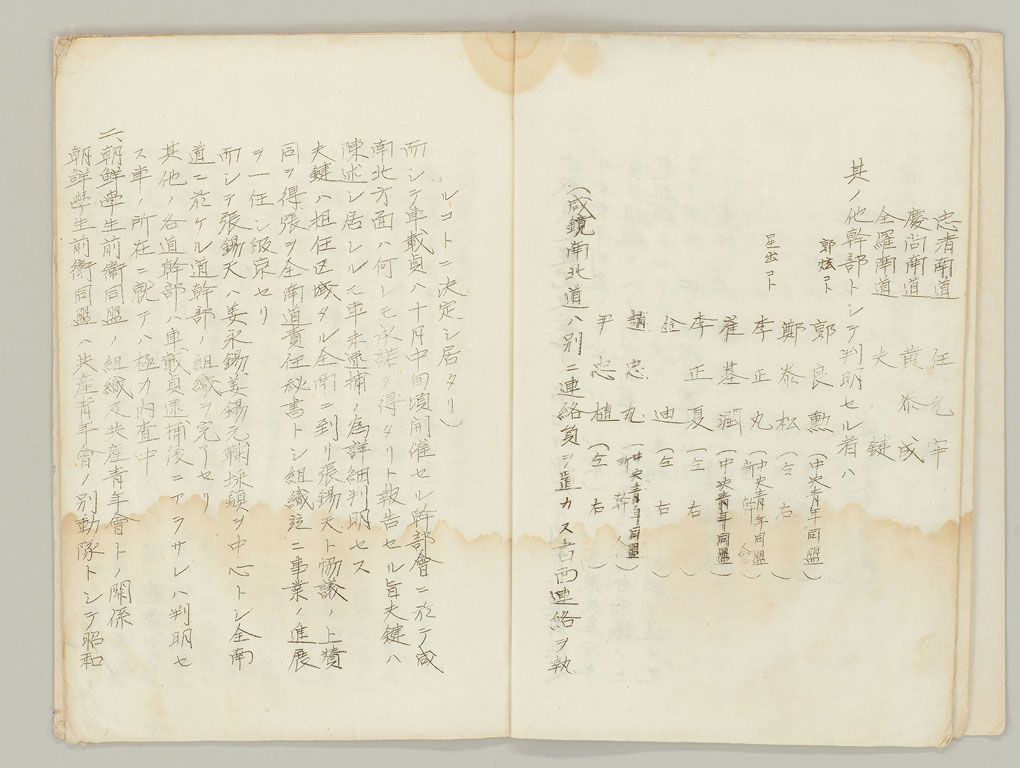 忠清南道 任允宰
慶尚南道 黄泰成
全羅南道 夫鍵
其ノ他幹部トシテ判明セル者ハ
郭炫コト 郭良勲(中央青年同盟)
鄭泰松(仝右)
星丸コト 李正丸(中央青年同盟 新幹會)
崔基潤(中央青年同盟)
李正夏(仝右)
迪(仝右)
趙忠九(中央青年同盟 新幹)
尹忠植(仝右)
(咸鏡南北道ハ別ニ連絡負ヲ置カス書面連絡ヲ執
ルコトニ決定シ居タリ)
而シテ車載貞ハ十月中旬頃開催セル幹部會ニ於テ咸
南北方面ハ何レモ承諾ヲ得タリト報告セル旨夫鍵ハ
陳述シ居レルモ車未逮捕ノ為詳細判明セス
夫鍵ハ担任区域タル全南ニ到リ張錫天ト協議ノ上賛
同ヲ得張ヲ全南道責任秘書トシ組織並ニ事業ノ進展
ヲ一任シ皈京セリ
而シテ張錫天ハ姜永錫姜錫元鞠採鎮ヲ中心トシ全南
道ニ於ケル道幹部ノ組織ヲ完了セリ
其他ノ各道幹部ハ車載貞逮捕後ニアラサレハ判明セ
ス車ノ所在ニ就テハ極力内査中
二、朝鮮学生前衛同盟ノ組織及共産青年會トノ関係
朝鮮学生前衛同盟ハ共産青年會ノ別動隊トシテ昭和